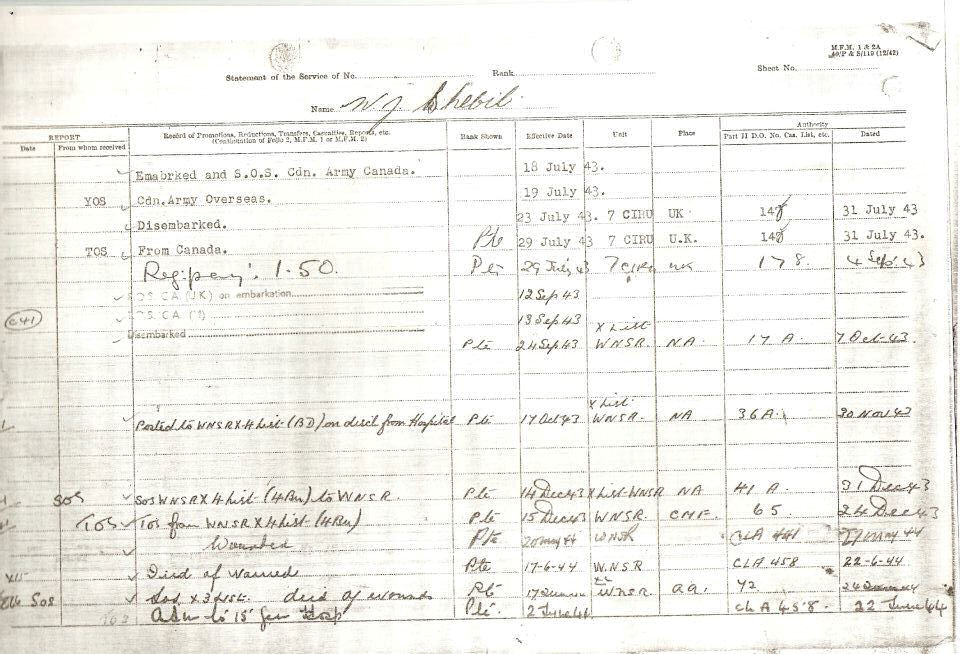 M.F.M. 1 & 2A
40/P & S/119 (12/42)
Statement of the Service of No. Rank Sheet No.
Name W J Shebib
REPORT Record of Promotions, Reductions, Transfers, Casualties, Reports, etc. (Continuation of Folio 2, M.F.M. 1 or M.F.M. 2) Rank Shown Effective Date Unit Place Authority
Date From whom received Part II D.O. No. Cas. List, etc. Dated
Emabrked and S.O.S. Cdn. Army Canada. 18 July 43.
YOS Cdn. Army Overseas. 19 July 43.
Disembarked. 23 July 43. 7 CIRU UK 148 31 July 43
TOS From Canada. Pte 29 July 43 7 CIRU U.K. 148 31 July 43.
Reg. pay 1.50. Pte 29 July 43 7 CIRU UK 178 4 Sep 43
S.O.S. CA (UK) on embarkation 12 Sep 43
C41 CA 13 Sep 43
Disembarked Pte 24 Sep 43 X List WNSR. NA 17 A. 7 Oct 43.
Posted to WNSR X 4 List (BD) on disch from Hospital Pte 17 Oct 43 X List WNSR. NA 36 A. 30 Nov 43
SOS SOS WNSR X 4 List (4 Bn) to WNSR. Pte 14 Dec 43 X List WNSR NA 41 A. 31 Dec 43
TOS TOS from WNSR X 4 List (4 Bn) Pte 15 Dec 43 WNSR. CMF. 65 24 Dec 43
Wounded Pte 20 May 44 WNSR CLA 441 May 44
Died of Wound Pte 17-6-44 W.N.S.R CLA 458 22-6-44
SOS Sos X 3 List. died of wounds Pte 17 June WNSR. 42
Adm to 15 Gen Hosp Pte. 2 June 44. CLA 458. 22 June 44